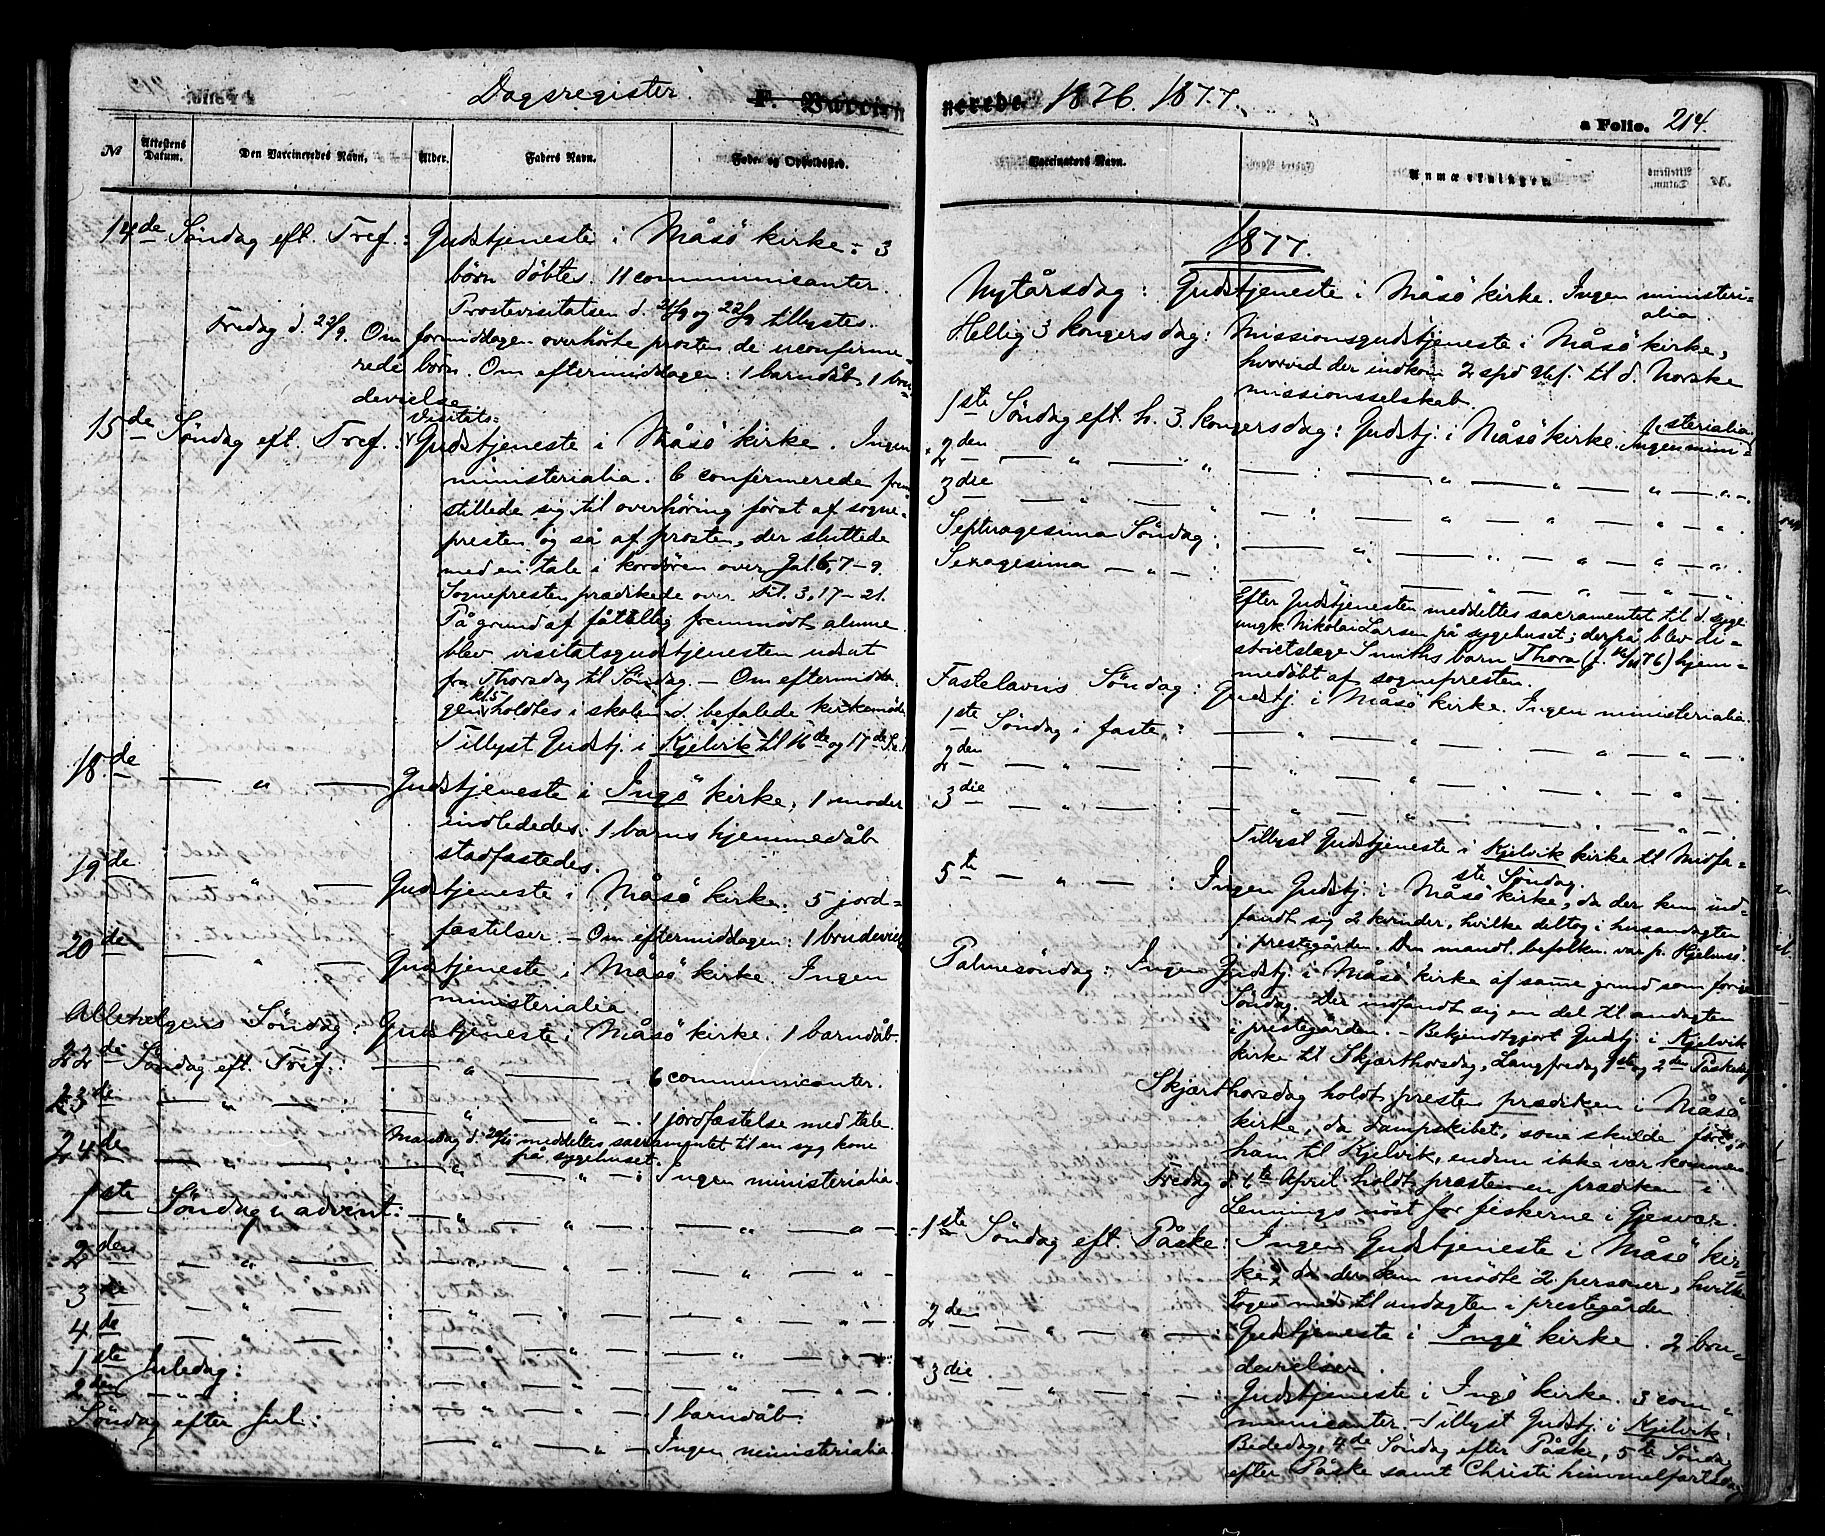 Dagsregister. F. Vaccin
No Attestens Datum. Den Vaccineredes Navn. Alder. Faders Navn. Føde- og Opholdssted.
14de Søndag eft. Tref.: Gudstjeneste i Måsö kirke: 3
börn döbtes. 11 communicanter.
Prostevisitatsen d. 21/9 og 22/9 tillystes.
Fredag d. 22/9. Om formiddagen overhörte prosten de uconfirme-
rede börn. Om eftermiddagen: 1 barndåb, 1 bru-
devielse
15de Søndag eft. Tref.: Visitats-
Gudstjeneste i Måsö kirke. Ingen
ministerialia. 6 confirmerede frem-
stillede sig til overhöring först af sogne-
presten og så af prosten, der sluttede
med en tale i kordören over Gal. 6, 7-9.
Sognepresten prædikede over Fil. 3, 17-21.
På grund af fåtallig fremmödt almue
blev visitatsgudstjenesten udsat
fra Thorsdag til Söndag. — Om eftermidda-
gen kl. 5 holdtes i skolen d. befalede kirkemöde
Tillyst Gudstj. i Kjelvik til 16de og 17de S. e. T.
18de — " — Gudstjeneste i Ingö kirke, 1 moder
indlededes. 1 barns hjemmedåb
stadfæstedes.
19de — " — Gudstjeneste i Måsö kirke. 5 jord-
fæstelser. — Om eftermiddagen: 1 brudevielse
20de — " — Gudstjeneste i Måsö kirke. Ingen
ministerialia
Allehelgens Söndag: Gudstjeneste i Måsö kirke. 1 barndåb.
22de Söndag eft. Tref.: — " — 6 communicanter.
23de — " — : — " — " — . 1 jordfæstelse med tale.
Mandag d. 20/11 meddeltes sacramentet til en syg kone
på sygehuset.
24de — " — : — " — " — : Ingen ministerialia.
1ste Söndag i advent: — " — " — " — " —
2den — " — : — " — " — " — " —
3de — " — : — " — " — " — " —
4de — " — : — " — " — " — " —
1ste Juledag: — " — " — " — " —
2den — " — : — " — " — 1 barndåb.
Söndag efter Jul: — " — " — Ingen ministerialia
nerede 1876. 1877.
a Folio. 214.
Vaccinators Navn. Anmærkninger.
1877.
Nytårsdag: Gudstjeneste i Måsö kirke. Ingen ministeri-
alia.
Hellig 3 kongersdag: Missionsgudstjeneste i Måsö kirke,
hvorved der indkom 2 spd til d. Norske
missionsselskab.
1ste Söndag eft. h. 3 kongersdag: Gudstj. i Måsö kirke. Ingen mini-
sterialia.
2den — " — " — : — " — " — " — " —
3die — " — " — : — " — " — " — " —
Septuagesima Söndag: — " — " — " — " —
Sexagesima — " — : — " — " — " — " —
Efter Gudstjenesten meddeltes sacramentet til d. syge
ungk. Nikolai Larsen på sygehuset; derpå blev di-
strictslæge Smiths barn Thora hjem-
medöbt af sognepresten.
Fastelavns Söndag: Gudstj. i Måsö kirke. Ingen ministerialia.
1ste Söndag i faste,: — " — " — " — " —
2den — " — : — " — " — " — " —
3die — " — : — " — " — " — " —
Tillyst Gudstjeneste i Kjelvik kirke til Midfa-
ste Söndag.
5te — " — : Ingen Gudstj. i Måsö kirke, da der kun ind-
fandt sig 2 kvinder, hvilke deltog i husandagten
i prestegården. Den mandl. befolkn. var p.
Palmesöndag: Ingen Gudstj. i Måsö kirke af samme grund som forrige
Söndag. Der indfandt sig en del til andagten
i prestegården. — Bekjendtgjort Gudstj. i Kjelvik
kirke til Skjærthorsdag, Langfredag, 1ste og 2den Påskedag
Skjærthorsdag holdt presten prædiken i Måsö
kirke, da Dampskibet, som skulde före
ham til Kjelvik, endnu ikke var kommen
Fredag d. April holdt præsten en prædiken i
Lennings nöst for fiskerne i Gjesvær.
1ste Söndag eft. Påske: Ingen Gudstjeneste i Måsö kir-
ke, da der kun mödte 2 personer, hvilke
toges med til andagten i prestegården
2den — " — " — : Gudstjeneste i Ingö kirke. 2 bru-
devielser.
3die — " — " — Gudstjeneste i Ingö kirke. 3 com-
municanter. Tillyst Gudstj. i Kjelvik:
Bededag, 4de Söndag efter Påske, 5te Söndag
efter Påske samt Christi himmelfartsdag